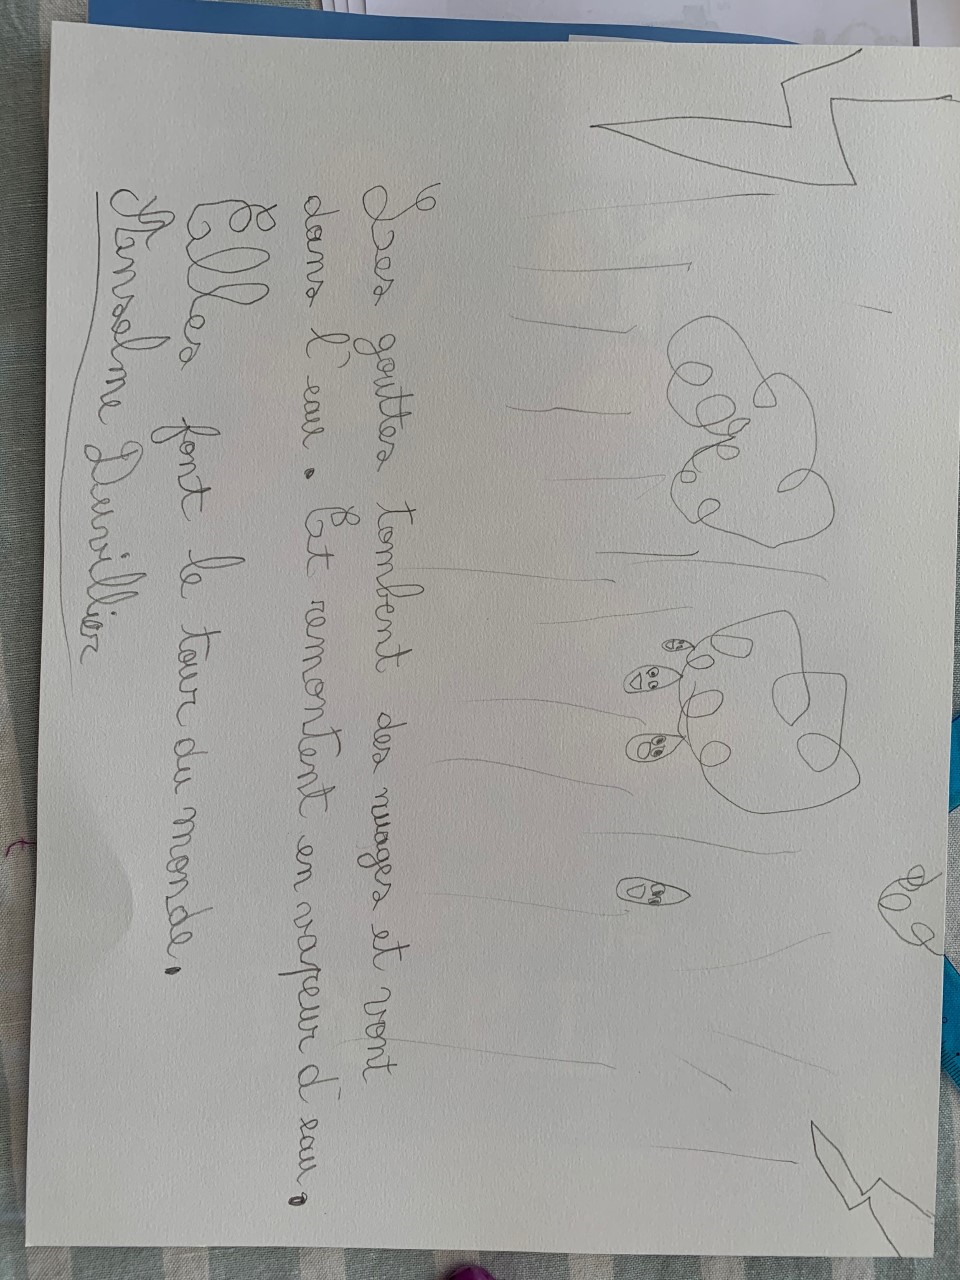 Les gouttes tombent des nuages et vont
dans l'eau. Et remontent en vapeur d'eau.
Elles font le tour du monde.
Anselme Duvillier